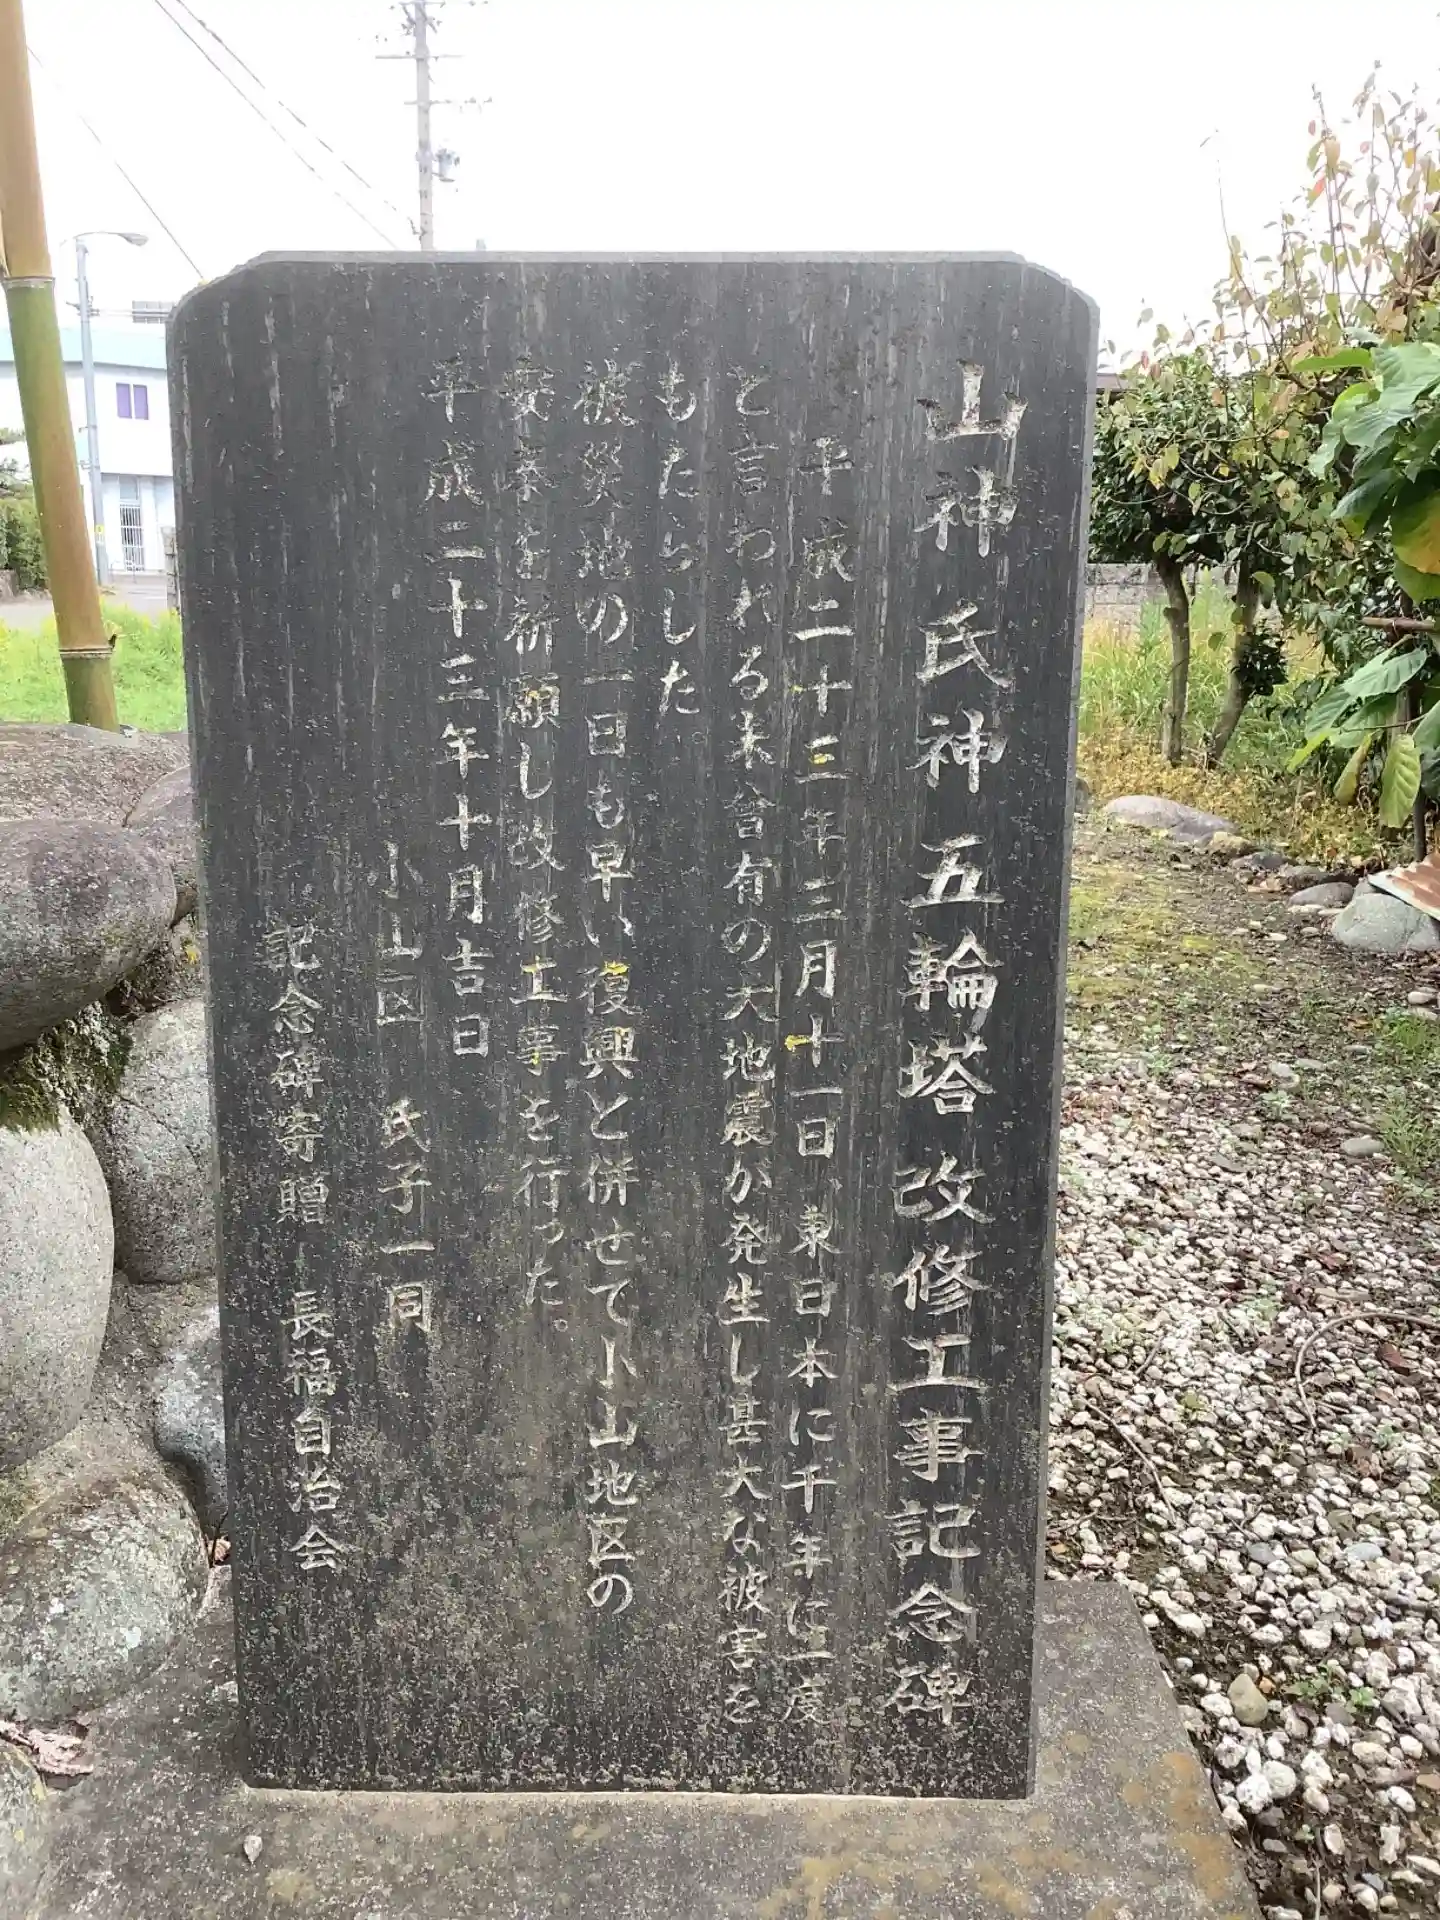 山神氏神五輪塔改修工事記念碑
平成二十三年三月十一日、東日本に千年に一度
と言われる未曾有の大地震が発生し甚大な被害を
もたらした。
被災地の一日も早い復興と併せて小山地区の
安泰を祈願し改修工事を行った。
平成二十三年十月吉日
小山区 氏子一同
記念碑寄贈 長福自治会